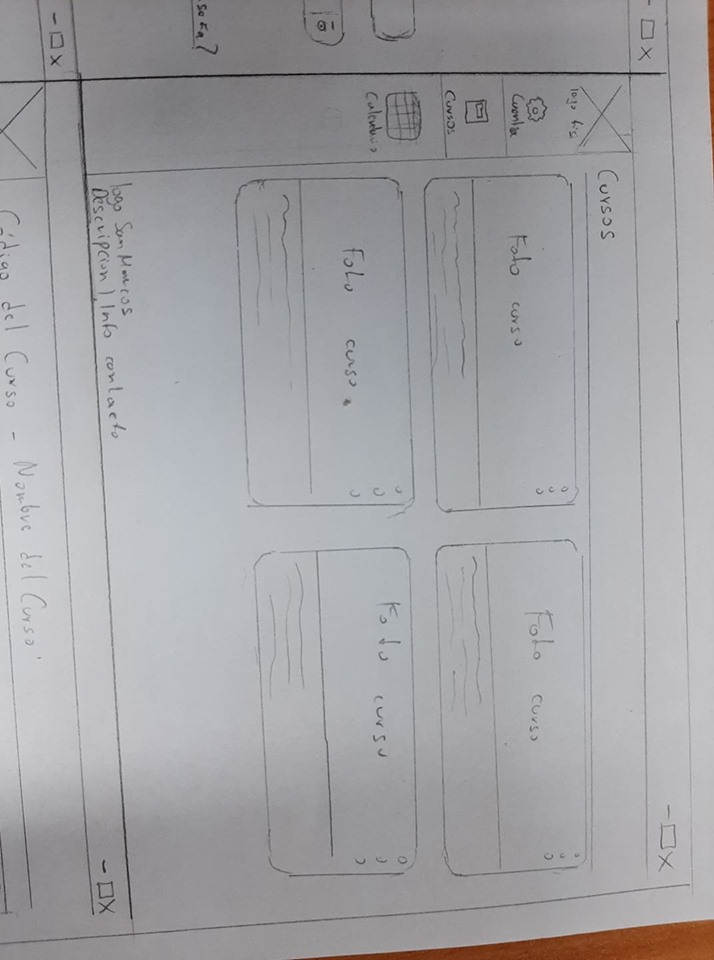 Cursos
logo
Cuenta
Cursos
Calendario
Foto curso
Foto curso
Foto curso
Foto curso
logo San Marcos
Descripcion | Info contacto
Código del Curso - Nombre del Curso